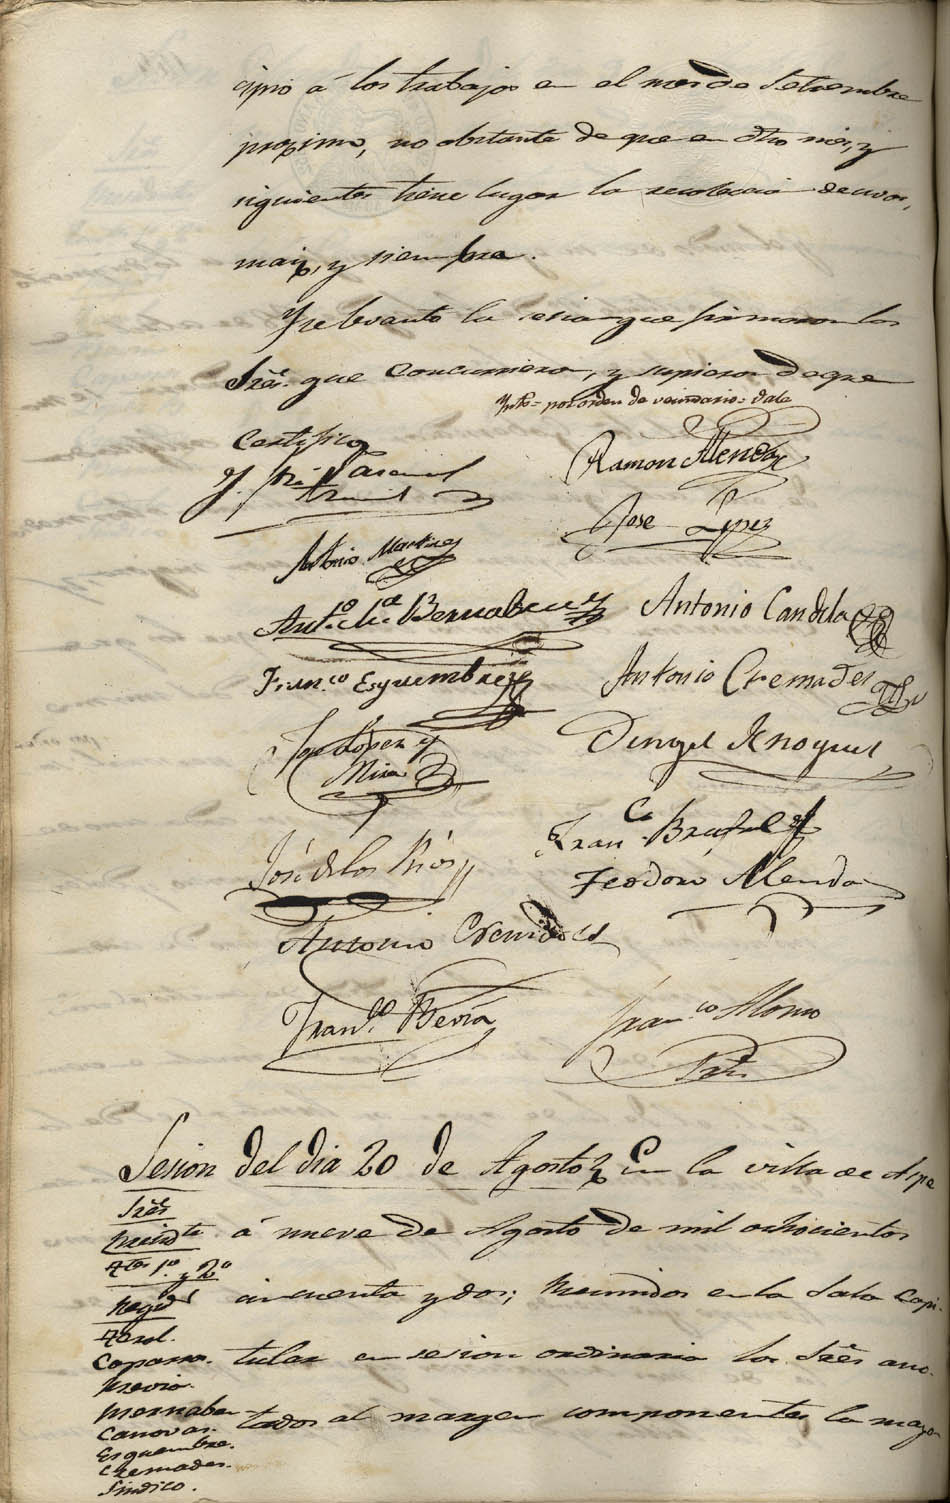 cipio á los trabajos en el mes de Setiembre
proximo, no obstante de que en dho mes, y
siguientes tiene lugar la recoleccion de uvas,
maiz, y siembra.
Y se levantó la sesion que firmaron los
Sres. que concurrieron, y supieron de que
por orden de vecindario = vale
Certifico
Ramon Alenda
Jose Lopez
Antonio Martinez
Anto. Bernabeu
Antonio Candela
Franco Esquembre
Antonio Cremades
Jose Lopez y
Mira
José de los Rios
Franco
Teodoro Alenda
Antonio Cremades
Franco Bevia
Franco Alonso
Sesion del dia 20 de Agosto En la villa de Aspe
Sres
Presidte
á nueve de Agosto de mil ochocientos
Ttes 1o y 2o
Regids
cincuenta y dos; Reunidos en la Sala Capi-
Caparros.
tular en sesion ordinaria los Sres ano-
Brevia.
Bernabeu
tados al margen componentes la mayor
Canovas.
Esquembre.
Cremades.
Sindico.